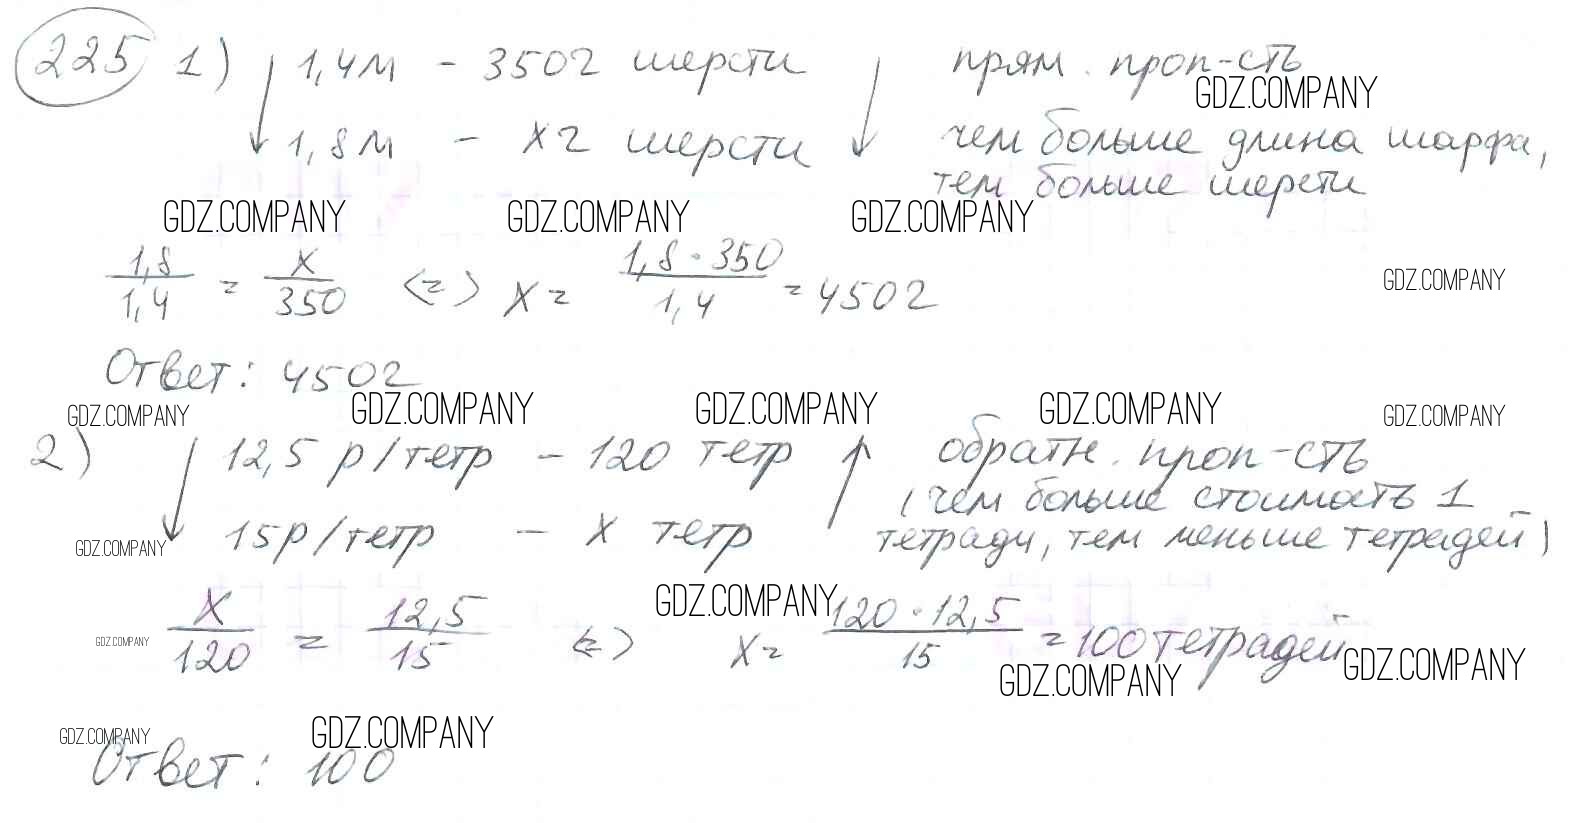 225 1) 1,4м - 350г шерсти прям. проп-сть
GDZ.COMPANY
1,8м - xг шерсти чем больше длина шарфа,
тем больше шерсти
GDZ.COMPANY GDZ.COMPANY GDZ.COMPANY
1,8/1,4 = x/350 <=> x = 1,8·350/1,4 = 450г
GDZ.COMPANY
Ответ: 450г
GDZ.COMPANY GDZ.COMPANY GDZ.COMPANY GDZ.COMPANY GDZ.COMPANY
2) 12,5 р/тетр - 120 тетр обратн. проп-сть
(чем больше стоимость 1
15р/тетр - x тетр тетради, тем меньше тетрадей)
GDZ.COMPANY
GDZ.COMPANY
x/120 = 12,5/15 <=> x = 120·12,5/15 = 100 тетрадей
GDZ.COMPANY GDZ.COMPANY GDZ.COMPANY
GDZ.COMPANY GDZ.COMPANY
Ответ: 100